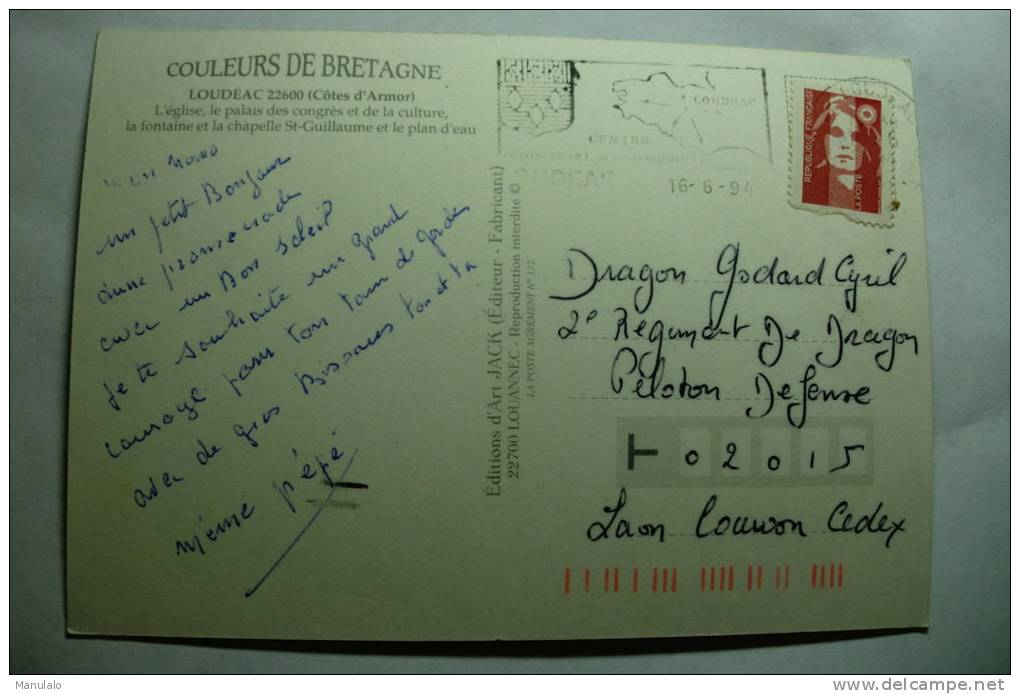 COULEURS DE BRETAGNE
LOUDÉAC 22600 (Côtes d'Armor)
L'église, le palais des congrès et de la culture,
la fontaine et la chapelle St-Guillaume et le plan d'eau
un petit Bonjour
d'une promenade
avec un Bon soleil
Je te souhaite un grand
courage pour ton tour de gardes
avec de gros Bissous
mémé pépé
Éditions d'Art JACK (Éditeur - Fabricant)
22700 LOUANNEC - Reproduction interdite ©
LA POSTE AGRÉMENT N° 132
LOUDEAC
CENTRE
INDUSTRIEL et COMMERCIAL
LOUDEAC
16-6-94
RÉPUBLIQUE FRANÇAISE
LA POSTE
Dragon Godard Cyril
2e Régiment De Dragon
Péloton Defense
T 02015
Laon Couvron Cedex
Manulalo
www.delcampe.net